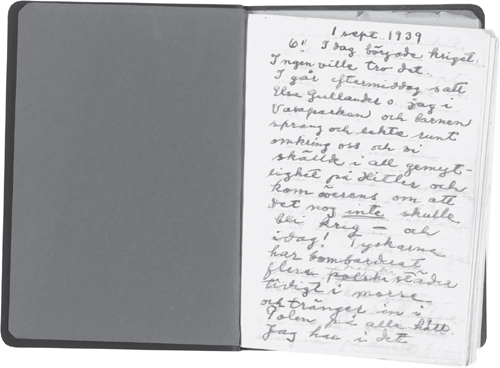 1 sept. 1939
O! I dag började kriget.
Ingen ville tro det.
I går eftermiddag satt
Elsa Gullander o. jag i
Vasaparken och barnen
sprang och lekte runt
omkring oss och vi
skällde i all gemyt-
lighet på Hitler och
kom överens om att
det nog inte skulle
bli krig – och
idag! Tyskarna
har bombarderat
flera polska städer
tidigt i morse
och tränger in i
Polen på alla håll
Jag har i det